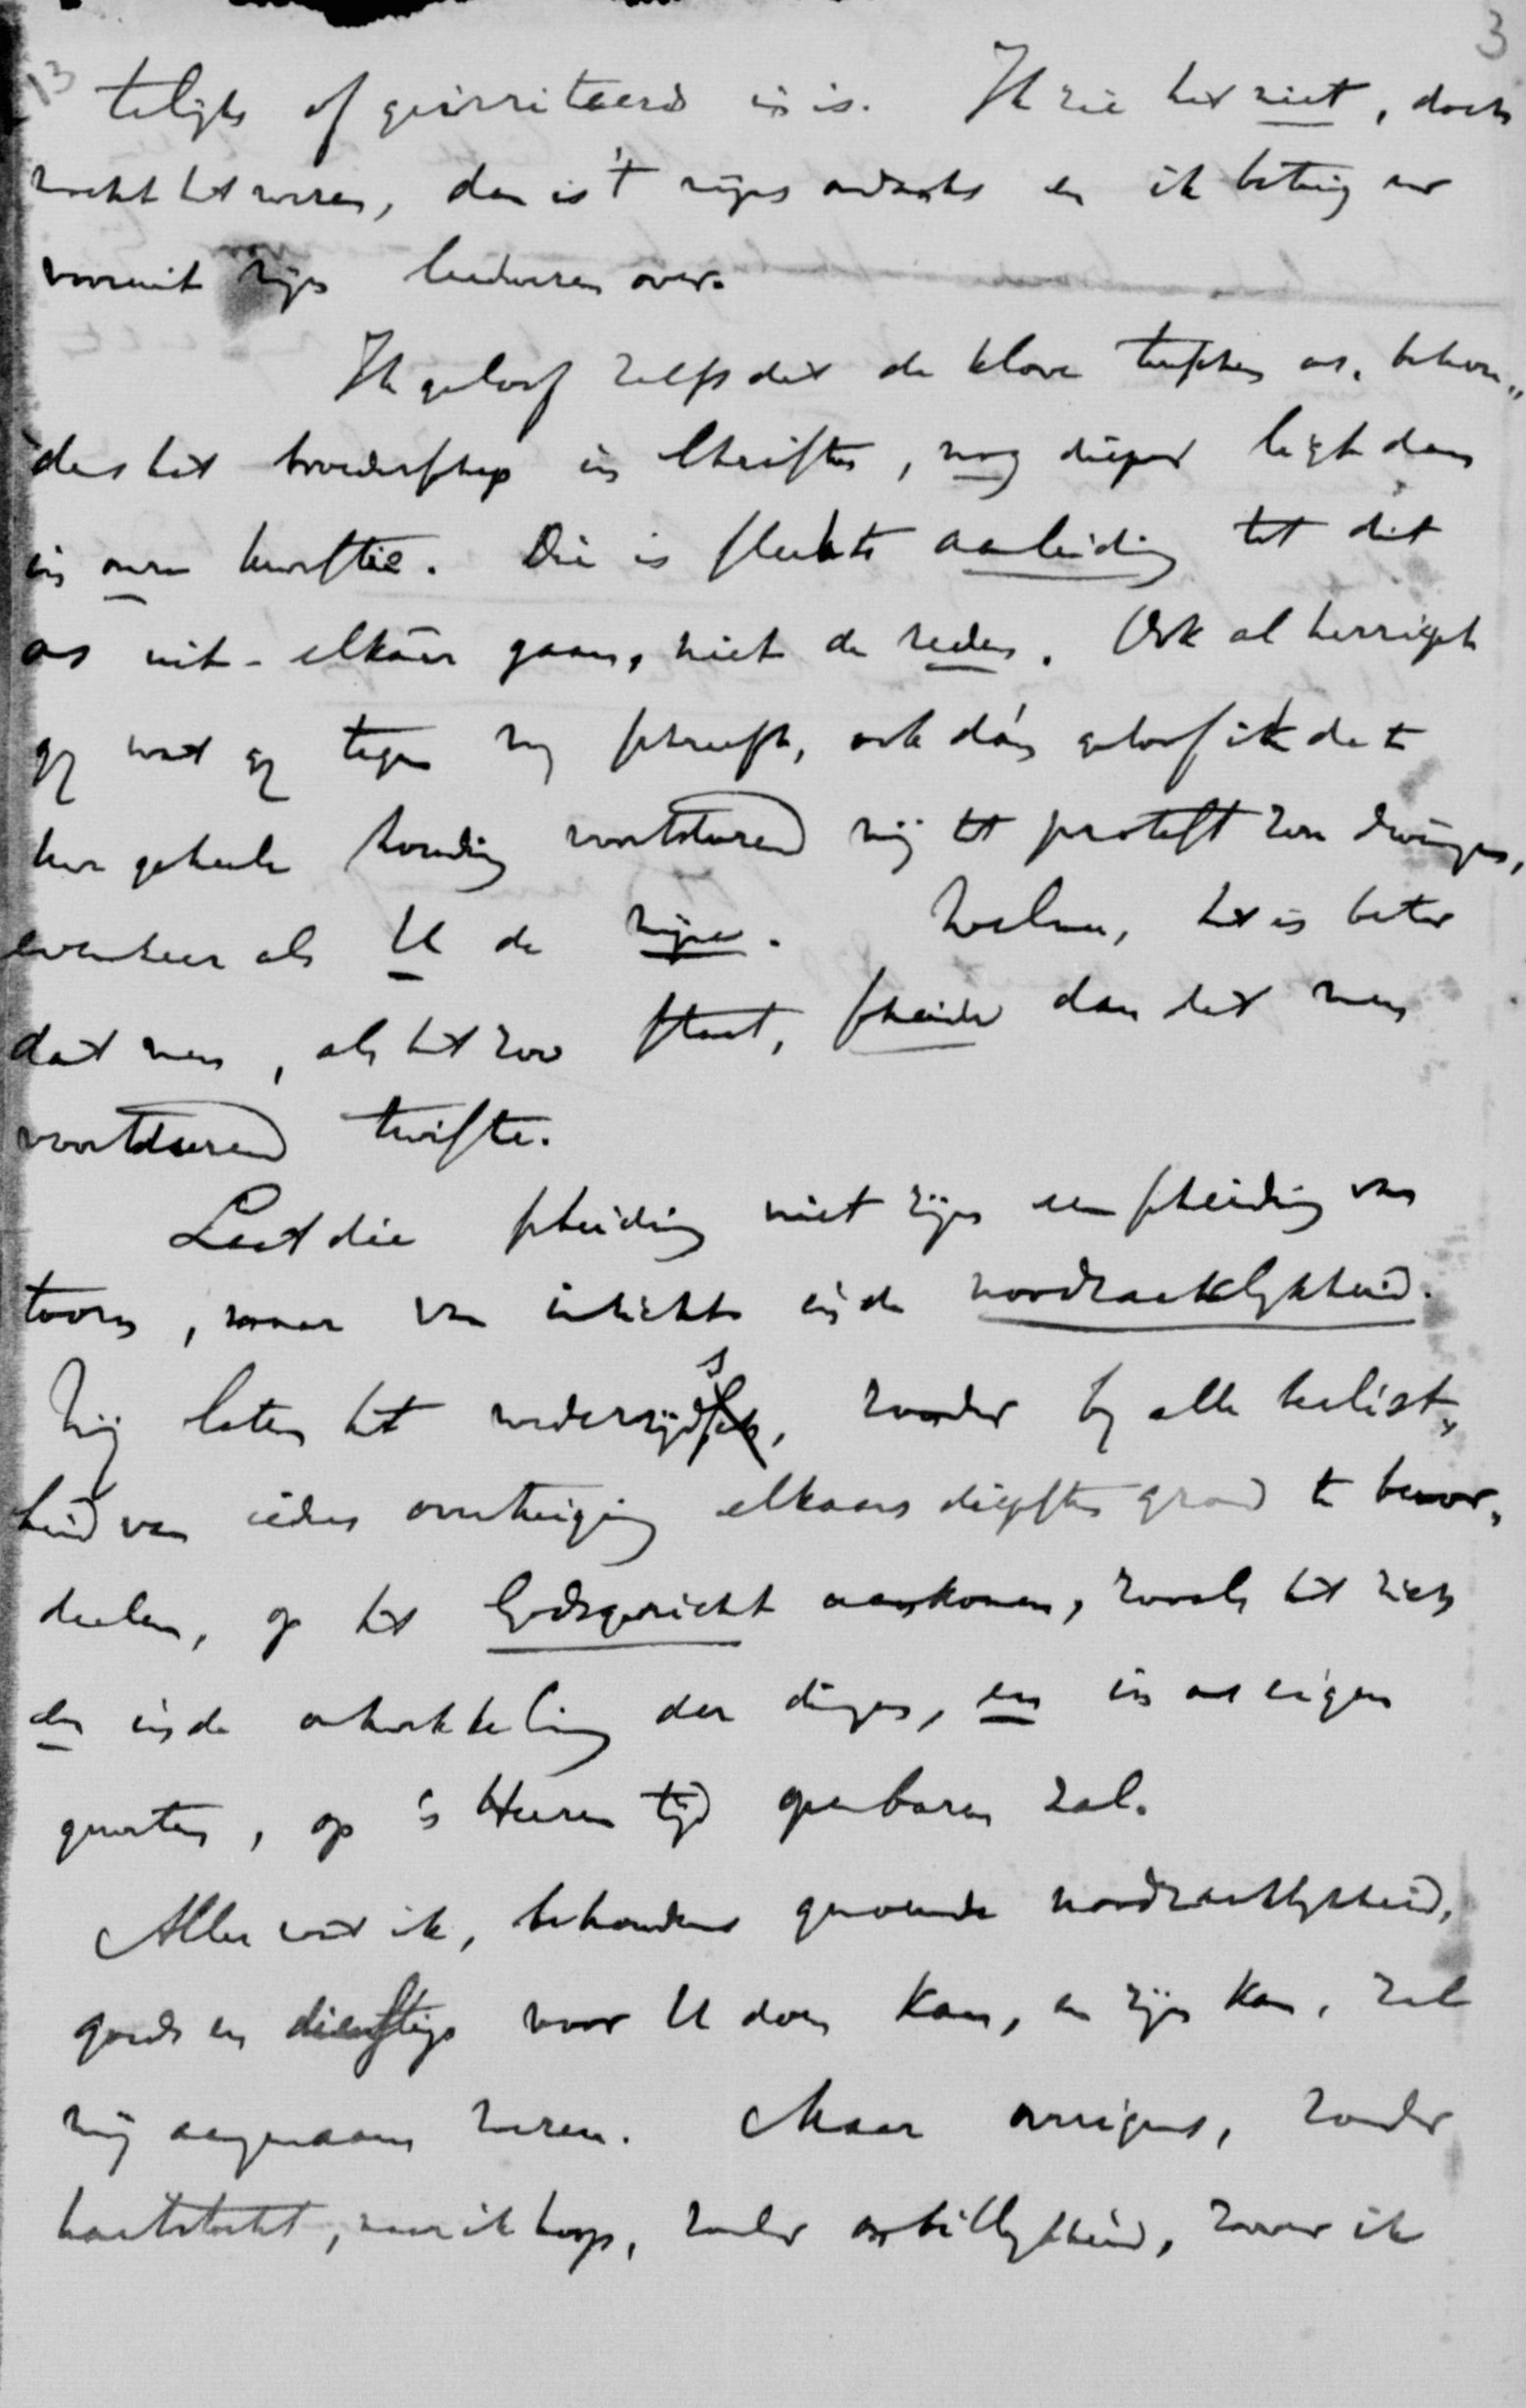 3
13
telijks of geïrriteerds in is. Ik zie het niet, doch
mocht het wezen, dan is 't mijns ondanks en ik betuig er
vooruit mijn leedwezen over.
Ik geloof zelfs dat de klove tusschen ons, behou„
dens het broederschap in Christus, nog dieper ligt dan
in onze kwestie. Die is slechts aanleiding tot dit
ons uit-elkâar gaan, niet de reden. Ook al herriept
gij wat gij tegen mij schreeft, ook dán geloof ik dat
uw geheele houding voortdurend mij tot protest zou dwingen,
evenzeer als U de mijne. Welnu, het is beter
dat men, als het zoo staat, scheide dan dat men
voortdurend twiste.
Laat die scheiding niet zijn een scheiding van
toorn, maar van inzicht in de noodzaaklijkheid.
Wij laten het wederzijds, zonder bij alle beslist„
heid van ieders overtuiging elkaars diepsten grond te beoor„
deelen, op het Godsgericht aankomen, zooals het zich
èn in de ontwikkeling der dingen, èn in ons eigen
geweten, op 's Heeren tijd openbaren zal.
Alles wat ik, behoudens genoemde noodzaaklijkheid,
goeds en dienstigs voor U doen kan, en zijn kan, zal
mij aangenaam wezen. Maar overigens, zonder
hartstocht, naar ik hoop, zonder onbillijkheid, waar ik